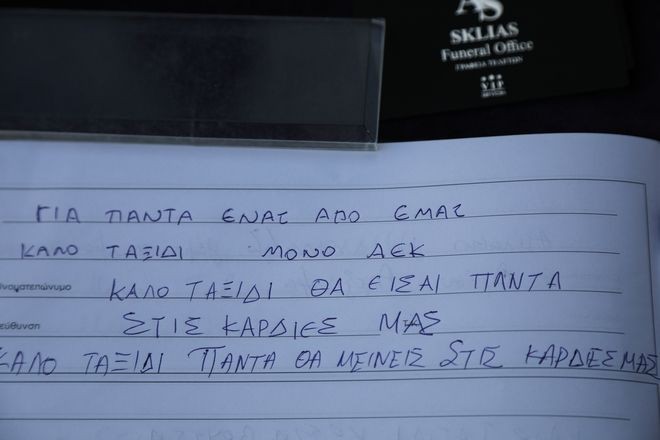 AS
SKLIAS
Funeral Office
ΓΡΑΦΕΙΑ ΤΕΛΕΤΩΝ
VIP
ΓΙΑ ΠΑΝΤΑ ΕΝΑΣ ΑΠΟ ΕΜΑΣ
ΚΑΛΟ ΤΑΞΙΔΙ ΜΟΝΟ ΑΕΚ
Ονοματεπώνυμο
ΚΑΛΟ ΤΑΞΙΔΙ ΘΑ ΕΙΣΑΙ ΠΑΝΤΑ
εύθυνση
ΣΤΙΣ ΚΑΡΔΙΕΣ ΜΑΣ
ΚΑΛΟ ΤΑΞΙΔΙ ΠΑΝΤΑ ΘΑ ΜΕΙΝΕΙΣ ΣΤΙΣ ΚΑΡΔΙΕΣ ΜΑΣ